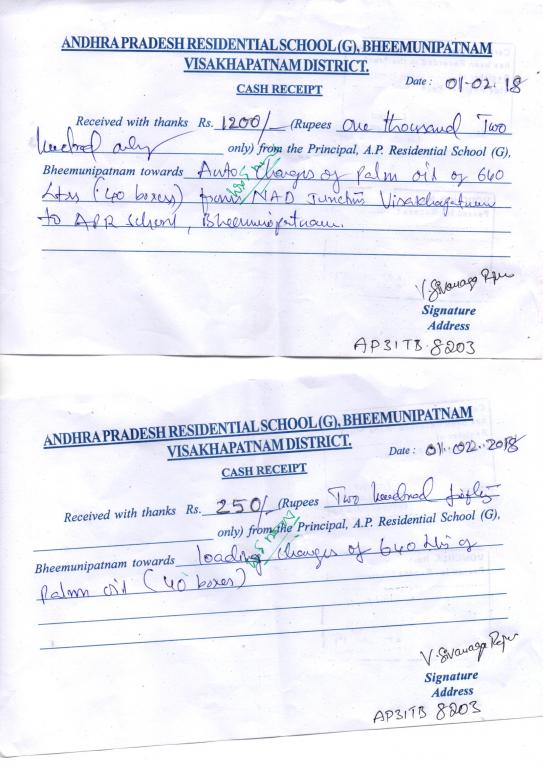 ANDHRA PRADESH RESIDENTIAL SCHOOL (G), BHEEMUNIPATNAM
VISAKHAPATNAM DISTRICT.
CASH RECEIPT
Date : 01-02.18
Received with thanks Rs. 1200/- (Rupees One thousand Two
hundred only only) from the Principal, A.P. Residential School (G),
Bheemunipatnam towards Auto charges of palm oil of 640
Ltrs (40 boxes) from NAD Junction Visakhapatnam
to APR School, Bheemunipatnam.
V. Sivanaga Raju
Signature
Address
AP31TB 8203
ANDHRA PRADESH RESIDENTIAL SCHOOL (G), BHEEMUNIPATNAM
VISAKHAPATNAM DISTRICT.
CASH RECEIPT
Date : 01..022..2018
Received with thanks Rs. 250/- (Rupees Two hundred fifty
only) from the Principal, A.P. Residential School (G),
Bheemunipatnam towards loading charges of 640 Ltrs of
Palm oil (40 boxes)
V. Sivanaga Raju
Signature
Address
AP31TB 8203